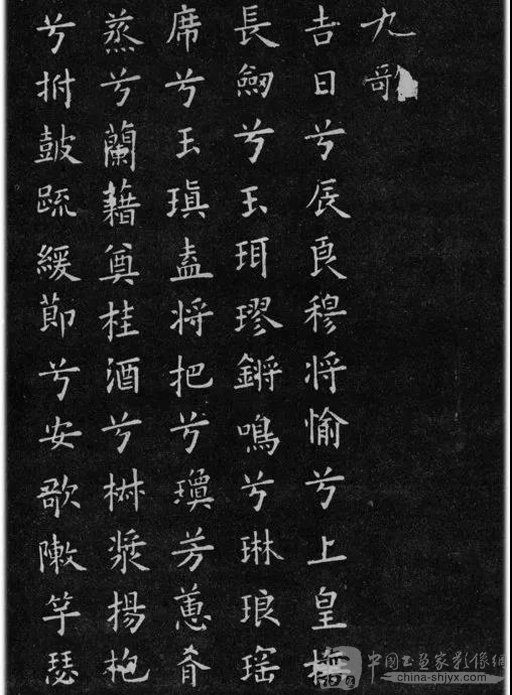 九歌
吉日兮辰良穆将愉兮上皇撫
長劒兮玉珥璆鏘鳴兮琳琅瑤
席兮玉瑱盍将把兮瓊芳蕙肴
蒸兮蘭藉奠桂酒兮椒漿揚枹
兮拊鼓疏緩節兮安歌敶竽瑟
中國书画家影像網
china-shjyx.com